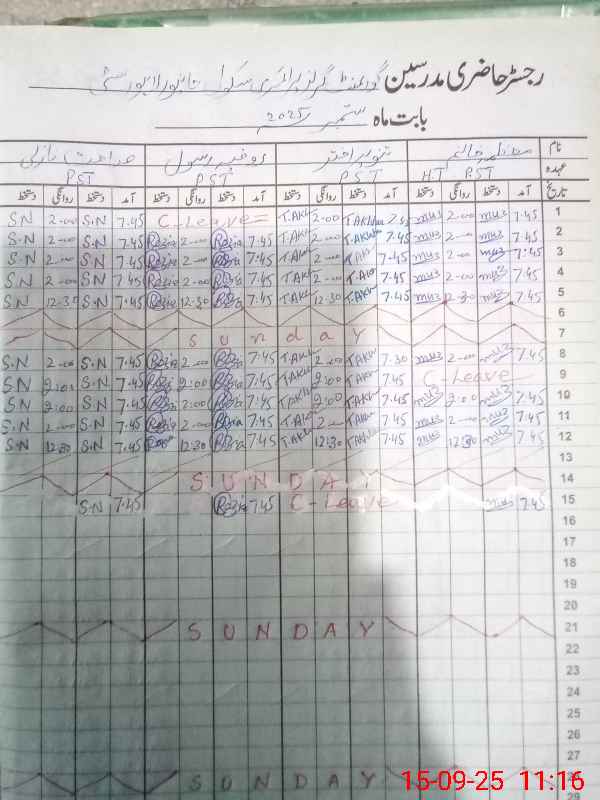 رجسٹر حاضری مدرسین گورنمنٹ گرلز پرائمری سکول
بابت ماہ ستمبر 2025
نام
عہدہ H.T PST PST PST PST
تاریخ آمد دستخط روانگی دستخط آمد دستخط روانگی دستخط آمد دستخط روانگی دستخط آمد دستخط روانگی دستخط
S.N 2-00 S.N 7.45 C-Leave T.AKh 2-00 T.AKh 7.45 muz 2-00 muz 7.45 1
S.N 2-00 S.N 7.45 Razia 2-00 Razia 7.45 T.AKh 2-00 T.AKh 7.45 muz 2-00 muz 7.45 2
S.N 2-00 S.N 7.45 Razia 2-00 Razia 7.45 T.AKh 2-00 T.AKh 7.45 muz 2-00 muz 7:45 3
S.N 2-00 S.N 7.45 Razia 2-00 Razia 7.45 T.AKh 2-00 T.AKh 7.45 muz 2-00 muz 7.45 4
S.N 12-30 S.N 7.45 Razia 12-30 Razia 7.45 T.AKh 12-30 T.AKh 7.45 muz 12-30 muz 7.45 5
6
Sunday 7
S.N 2-00 S.N 7.45 Razia 2-00 Razia 7.45 T.AKh 2-00 T.AKh 7.30 muz 2-00 muz 7.45 8
S.N 2:00 S.N 7.45 Razia 2:00 Razia 7.45 T.AKh 2:00 T.AKh 7.45 C-Leave 9
S.N 2:00 S.N 7.45 Razia 2:00 Razia 7.45 T.AKh 2:00 T.AKh 7.45 muz 2:00 muz 7.45 10
S.N 2-00 S.N 7.45 Razia 2-00 Razia 7.45 T.AKh 2-00 T.AKh 7.45 muz 2-00 muz 7.45 11
S.N 12:30 S.N 7.45 12:30 Razia 7.45 T.AKh 12:30 T.AKh 7.45 muz 12:30 muz 7.45 12
13
SUNDAY 14
S.N 7.45 Razia 7.45 C-Leave muz 7.45 15
16
17
18
19
20
SUNDAY 21
22
23
24
25
26
27
SUNDAY 28
29
15-09-25 11:16